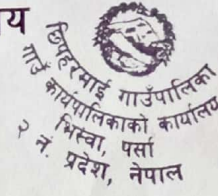 य
छिपहरमाई गाउँपालिका
गाउँ कार्यपालिकाको कार्यालय
भिस्वा, पर्सा
२ नं. प्रदेश, नेपाल